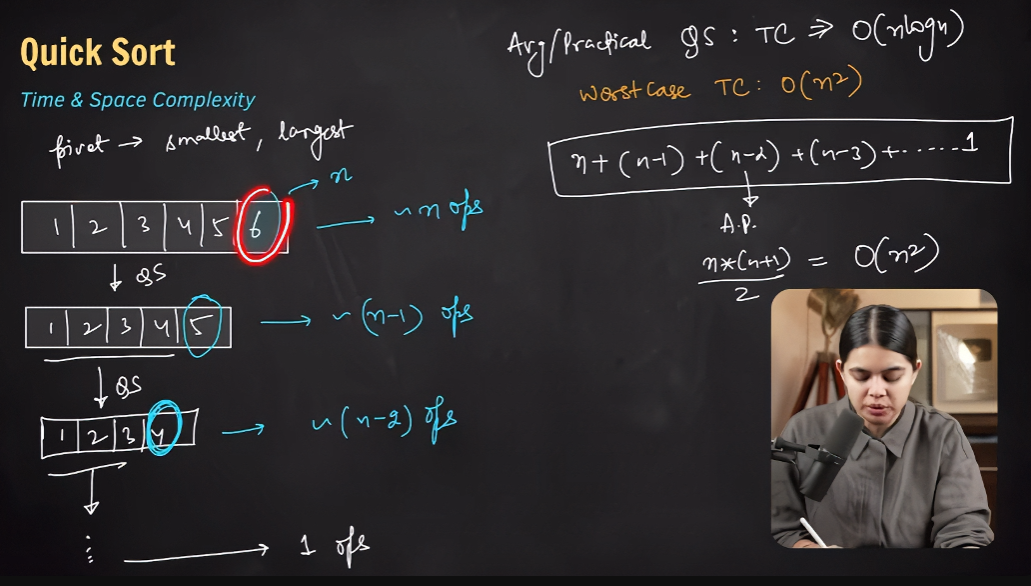 Quick Sort
Time & Space Complexity
pivot → smallest, largest
n
1 2 3 4 5 6 → ~ n ops
↓ QS
1 2 3 4 5 → ~ (n-1) ops
↓ QS
1 2 3 4 → ~ (n-2) ops
⋮ → 1 ops
Avg/Practical QS : TC ⇒ O(nlogn)
Worst Case TC: O(n²)
n + (n-1) + (n-2) + (n-3) + ...... 1
↓
A.P.
n*(n+1)/2 = O(n²)